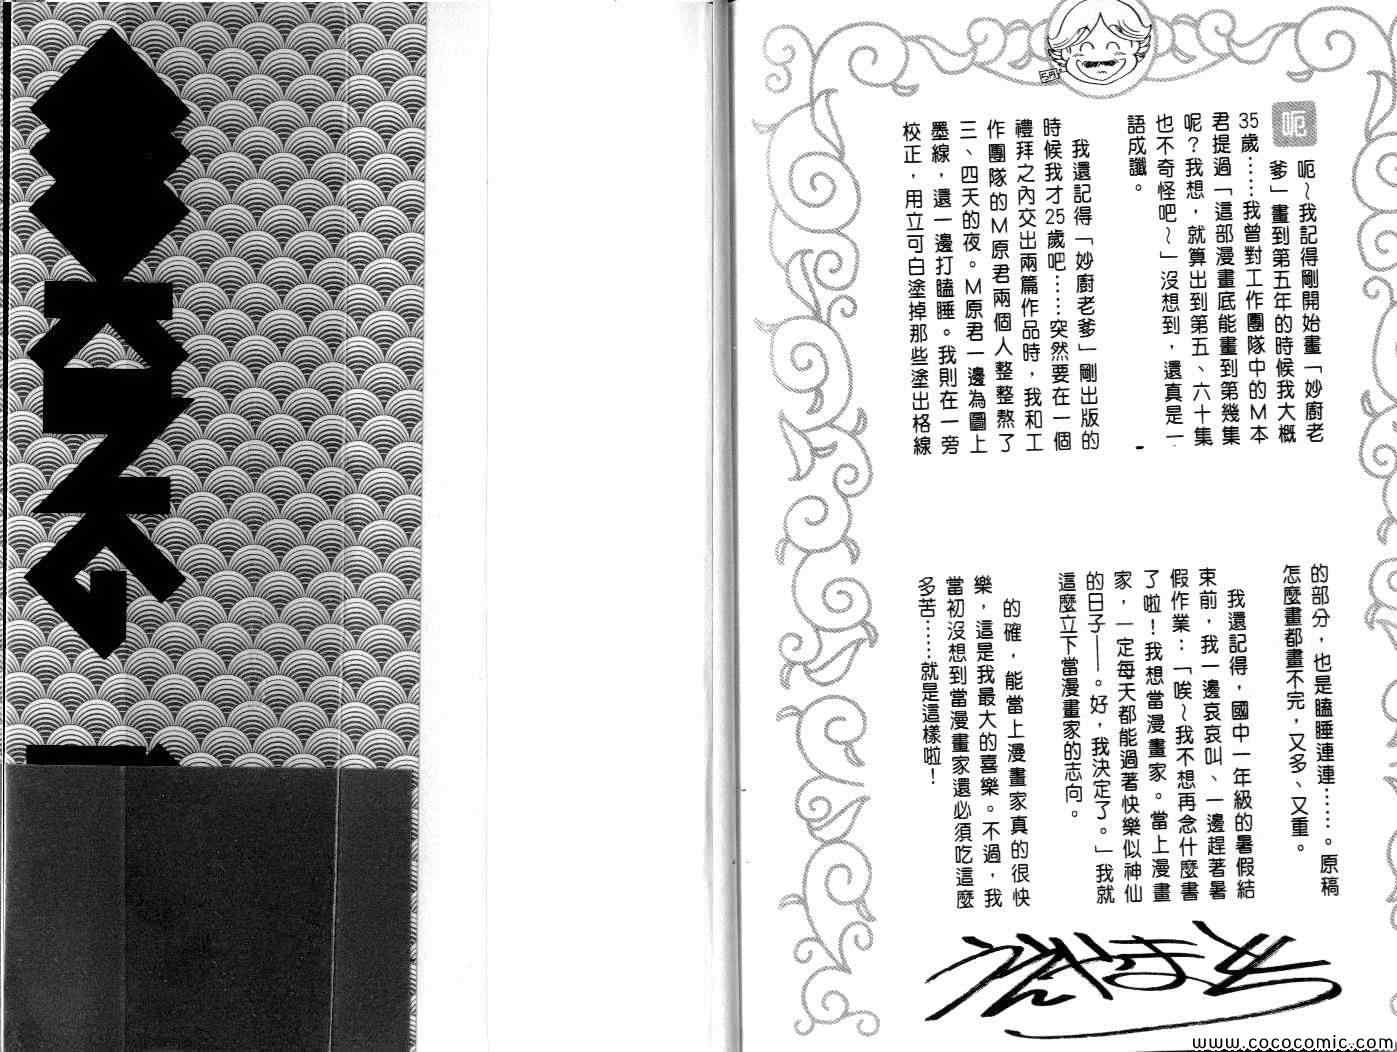 呃
呃～我記得剛開始畫「妙廚老
爹」畫到第五年的時候我大概
35歲……我曾對工作團隊中的M本
君提過「這部漫畫底能畫到第幾集
呢？我想，就算出到第五、六十集
也不奇怪吧～」沒想到，還真是一
語成讖。
我還記得「妙廚老爹」剛出版的
時候我才25歲吧……突然要在一個
禮拜之內交出兩篇作品時，我和工
作團隊的M原君兩個人整整熬了
三、四天的夜。M原君一邊為圖上
墨線，還一邊打瞌睡。我則在一旁
校正，用立可白塗掉那些塗出格線
的部分，也是瞌睡連連……。原稿
怎麼畫都畫不完，又多、又重。
我還記得，國中一年級的暑假結
束前，我一邊哀哀叫、一邊趕著暑
假作業：「唉～我不想再念什麼書
了啦！我想當漫畫家。當上漫畫
家，一定每天都能過著快樂似神仙
的日子——。好，我決定了。」我就
這麼立下當漫畫家的志向。
的確，能當上漫畫家真的很快
樂，這是我最大的喜樂。不過，我
當初沒想到當漫畫家還必須吃這麼
多苦……就是這樣啦！
www.cococomic.com